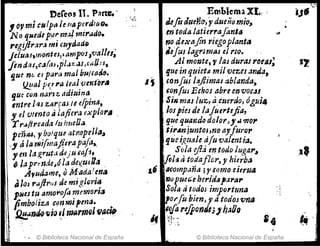 Defeos II. Parte.
y oy mi culpa le ha perdido.
No quede por mal mirado.
registrara mi cuydado
seluas, montes, campos, valles,
sendas, casas, plazas, calles,
que no es para mal buscado.
Qual perra leal ventora
que con nariz adiuina
entre las zarças se espina,
y el viento à la fiera explora
rastreada la huella
peñas, y bosque atropella,
y à la misma fiera pasma,
y en la gruta de sucasa,
ò la prende, ò la deguella
Ayudame, ò Madalena
à los rastros de mi gloria
pues tu amorosa memoria
simboliza con mi pena.
Quando vio el marmol vacio
15
16
Emblema XI.
de su dueño, y dueño mio,
en toda la tierra santa
no dexa sin riego planta
de sus lagrimas el rio.
Al monte, y las duras rocas
que inquieta mil vezes anda,
con sus lastimas ablanda,
con sus Echos abre en vocas
Sin mas luz, à cuerdo, ò guia
los pies de la fuerte fia,
que quando dolor, y amor
tiran juntos, no ay furor
que iguale à su valentia.
Sola està en todo lugar,
sola à toda flor, y hierba
acompaña; y como cierua
no puede herida parar
Sola à todos importuna
por su bien, y à todos vna
cosa responde; y hallo
17
18
S 4
© Biblioteca Nacional de España
© Biblioteca Nacional de España